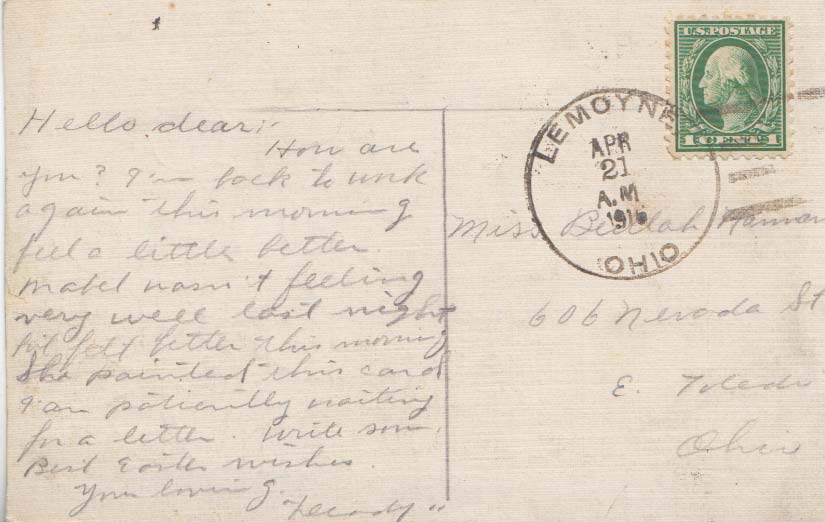 Hello dear:-
How are
you? I'm back to work
again this morning
feel a little better.
Mabel wasn't feeling
very well last night
but felt better this morning
She painted this card
I am patiently waiting
for a letter. Write soon.
Best Easter wishes.
Your loving
U.S. POSTAGE
1 CENT 1
LEMOYNE
APR
21
A.M
OHIO
Miss Beulah
606 Nevada St
E. Toledo
Ohio